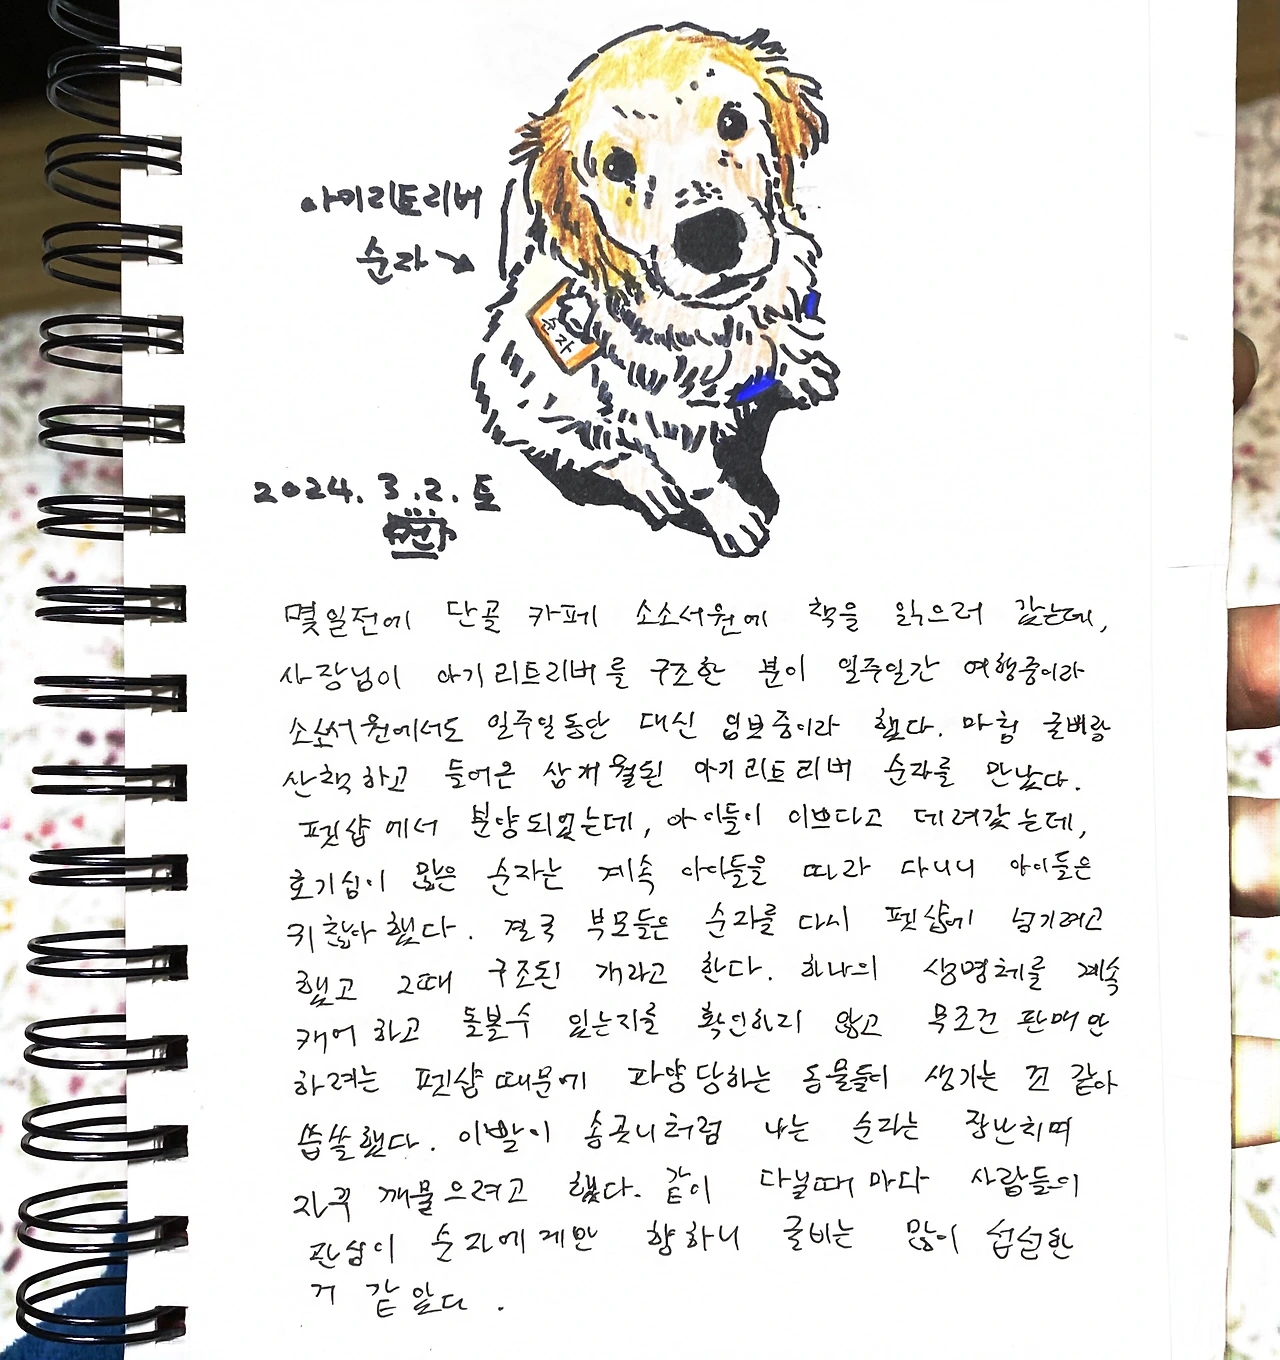 아기리트리버
순자
순자
2024. 3. 2. 토
몇일전에 단골 카페 소소서원에 책을 읽으러 갔는데,
사장님이 아기리트리버를 구조한 분이 일주일간 여행중이라
소소서원에서도 일주일동안 대신 임보중이라 했다. 마침 굴비랑
산책하고 들어온 삼개월된 아기리트리버 순자를 만났다.
펫샵에서 분양되었는데, 아이들이 이쁘다고 데려갔는데,
호기심이 많은 순자는 계속 아이들을 따라 다니니 아이들은
귀찮아 했다. 결국 부모들은 순자를 다시 펫샵에 넘기려고
했고 그때 구조된 개라고 한다. 하나의 생명체를 계속
케어하고 돌볼수 있는지를 확인하지 않고 무조건 판매만
하려는 펫샵때문에 파양당하는 동물들이 생기는 것 같아
씁쓸했다. 이빨이 송곳니처럼 나는 순자는 장난치며
자꾸 깨물으려고 했다. 같이 다닐때마다 사람들의
관심이 순자에게만 향하니 굴비는 많이 섭섭한
거 같았다.